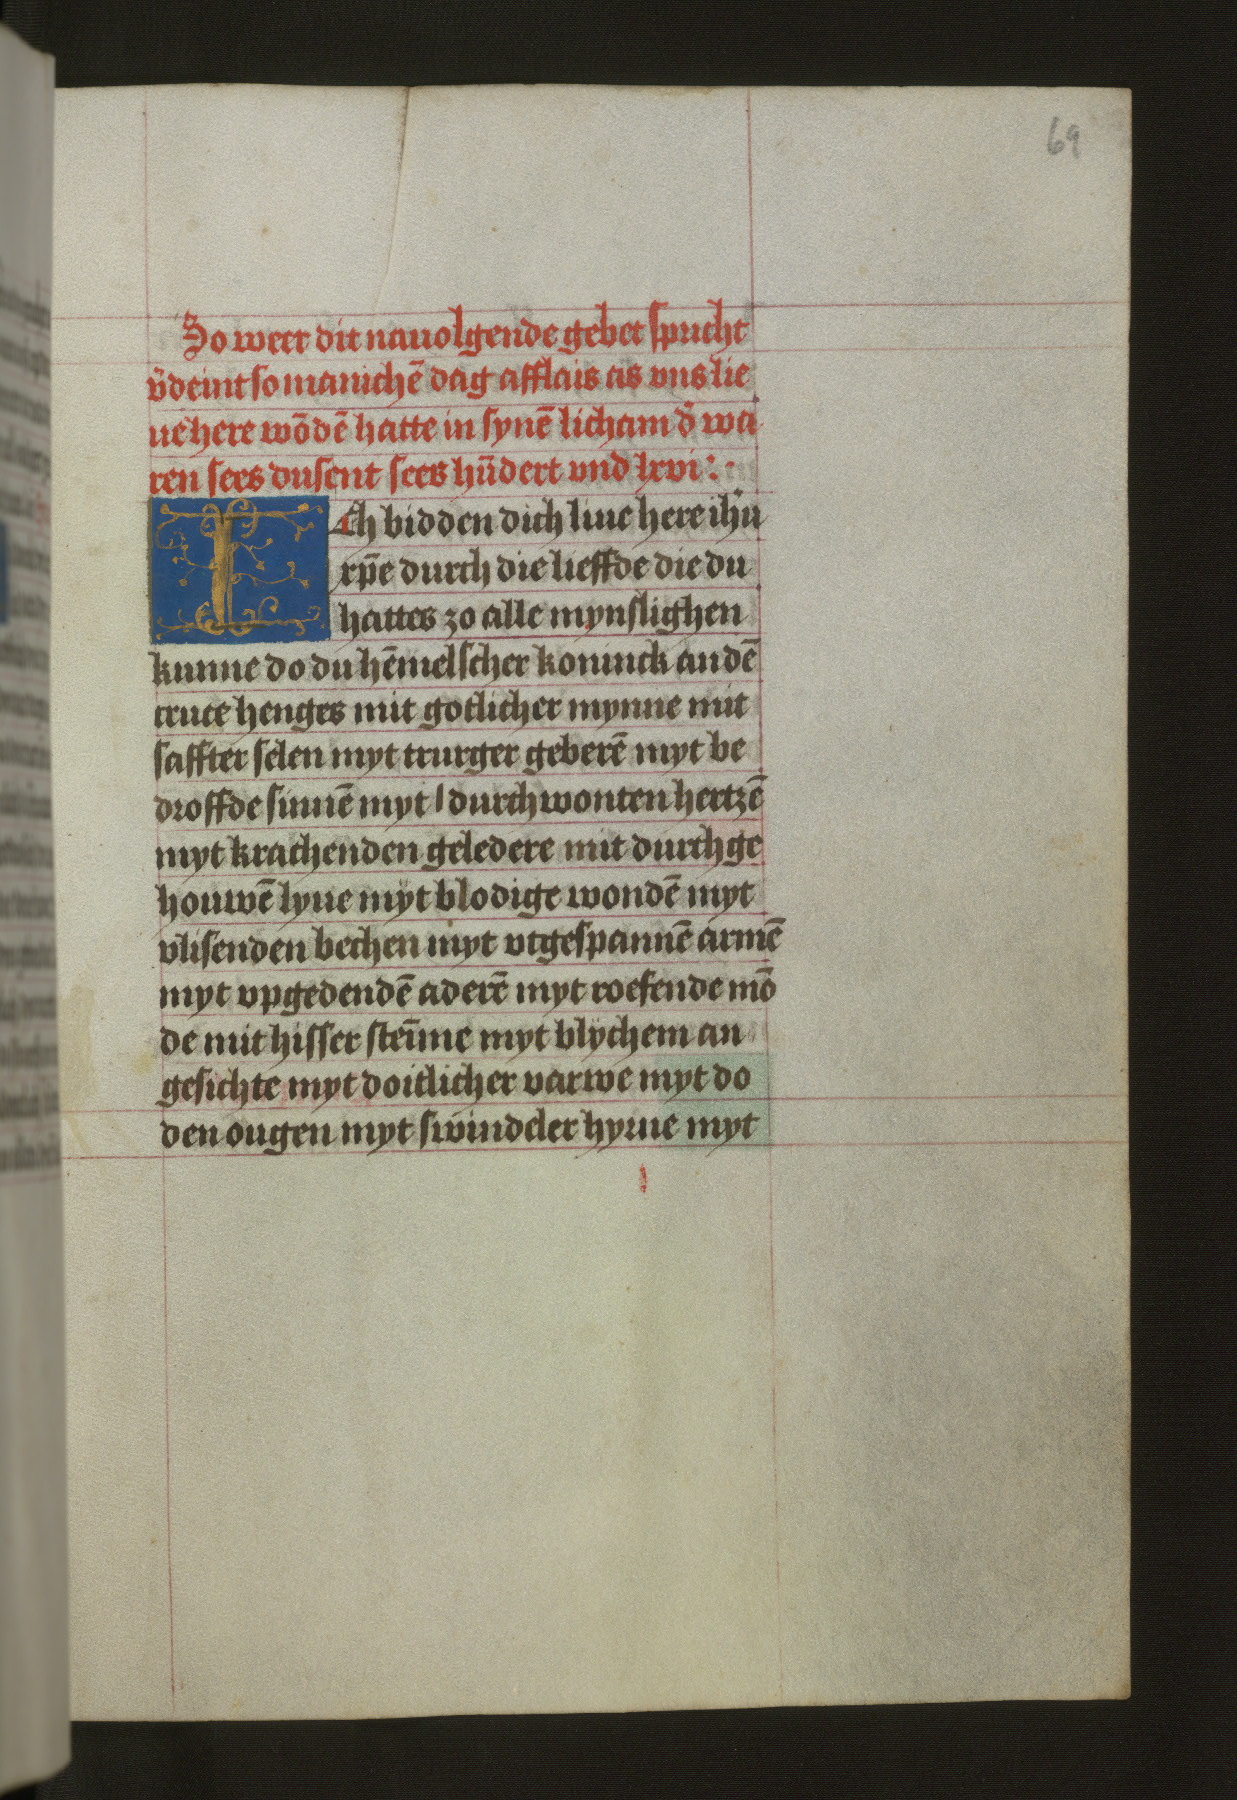 69
So weer dit nauolgende gebet spricht
v̄deint so manichē dag afflais as vns lie
ue here wōdē hatte in synē licham d̄ wa
ren sees dusent sees hūdert vnd lxvi :·
Ich bidden dich liue here ih̄u
xp̄e durch die lieffde die du
hattes zo alle mynslighen
kunne do du hēmelscher koninck an dē
cruce henges mit gotlicher mynne mit
saffter selen myt trurger geberē myt be
droffde sinnē myt durchwonten hertzē
myt krachenden geledere mit durchge
houwē lyue myt blodige wondē myt
vlisenden bechen myt vtgespannē armē
myt vpgedendē aderē myt roefende mō
de mit hisser stēme myt blychem an
gesichte myt doitlicher varwe myt do
den ougen myt swindeler hyrne myt